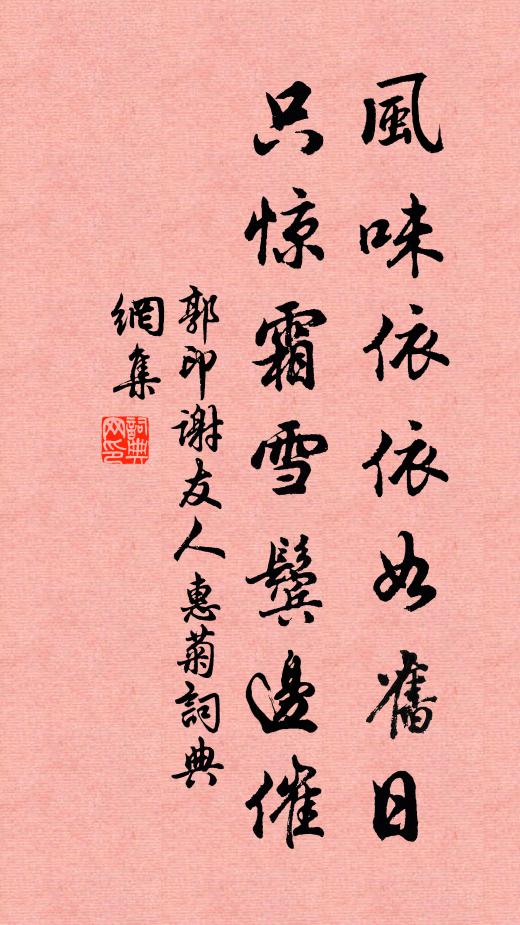 風味依依如舊日
只惊霜雪鬓邊催
郭印谢友人惠菊詞典
網集
詞典
网印